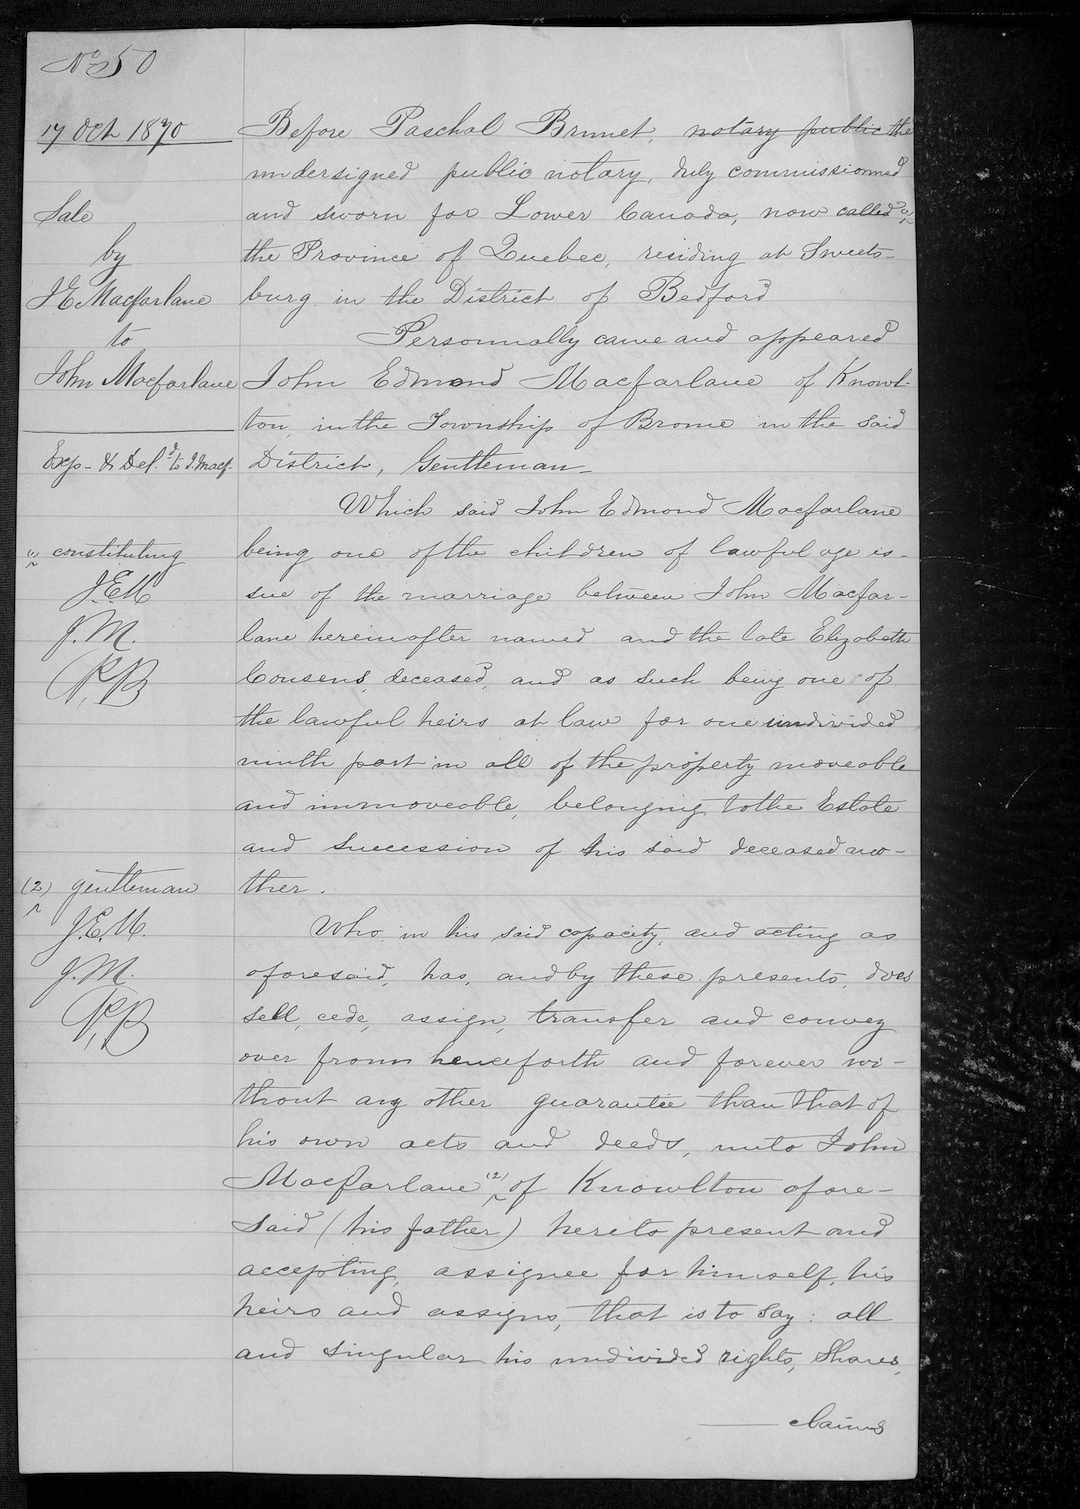 No 50
17 Oct 1870
Sale
by
J E Macfarlane
to
John Macfarlane
Exp. & Del.d to J. Macf.
(1) constituting
J.E.M
J.M.
P,B
(2) gentleman
J.E.M.
J.M.
P,B
Before Paschal Brunet, notary public the
undersigned public notary, duly commissionned
and sworn for Lower Canada, now called (1)
the Province of Quebec, residing at Sweets-
burg in the District of Bedford
Personnally came and appeared
John Edmond Macfarlane of Knowl-
ton, in the Township of Brome in the said
District, Gentleman_
Which said John Edmond Macfarlane
being one of the children of lawful age is-
sue of the marriage between John Macfar-
lane hereinafter named and the late Elizabeth
Cousens, deceased, and as such being one of
the lawful heirs at law for one undivided
ninth part in all of the property moveable
and immoveable, belonging to the Estate
and Succession of his said deceased mo-
ther.
Who in his said capacity, and acting as
aforesaid, has, and by these presents, does
sell, cede, assign, transfer and convey
over from henceforth and forever wi-
thout any other guarantee than that of
his own acts and deeds, unto John
Macfarlane (2) of Knowlton afore-
said (his father) hereto present and
accepting, assignee for himself, his
heirs and assigns, that is to say: all
and singular his undivided rights, Shares,
claims